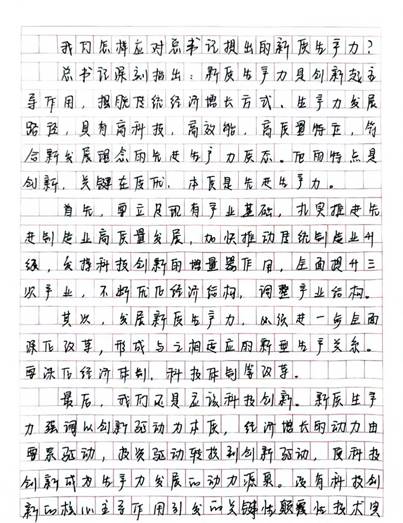 我们怎样应对总书记提出的新质生产力？
总书记深刻指出：新质生产力是创新起主
导作用，摆脱传统经济增长方式、生产力发展
路径，具有高科技，高效能，高质量特征，符
合新发展理念的先进生产力质态。它的特点是
创新，关键在质优，本质是先进生产力。
首先，要立足现有产业基础，扎实推进先
进制造业高质量发展，加快推动传统制造业升
级，发挥科技创新的增量器作用，全面提升三
次产业，不断优化经济结构，调整产业结构。
其次，发展新质生产力，必须进一步全面
深化改革，形成与之相适应的新型生产关系。
要深化经济体制，科技体制等改革。
最后，我们还是应该科技创新。新质生产
力强调以创新驱动为本质，经济增长的动力由
要素驱动，投资驱动转换到创新驱动，使科技
创新成为生产力发展的动力源泉。没有科技创
新的核心主导作用引发的关键性颠覆性技术突